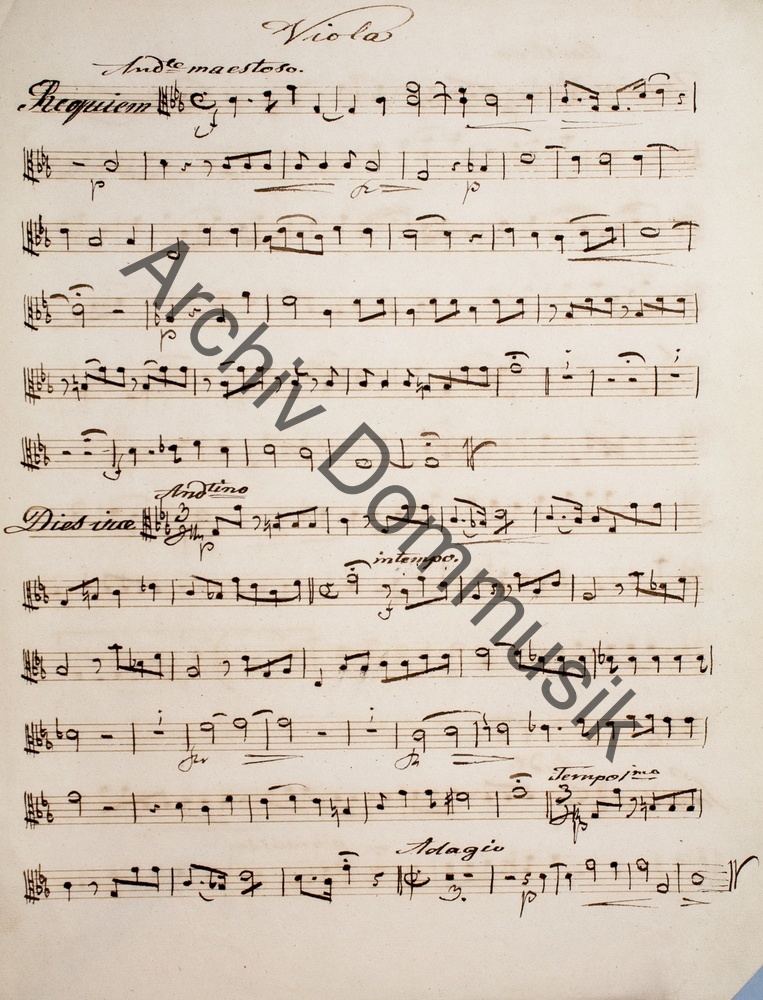 Viola
And.te maestoso.
Requiem
f
p
fz
p
p
f
Andtino
Dies iræ
3
p
intempo.
f
fz
fz
Tempo 1mo
3
p
Adagio
3.
p
Archiv Dommusik